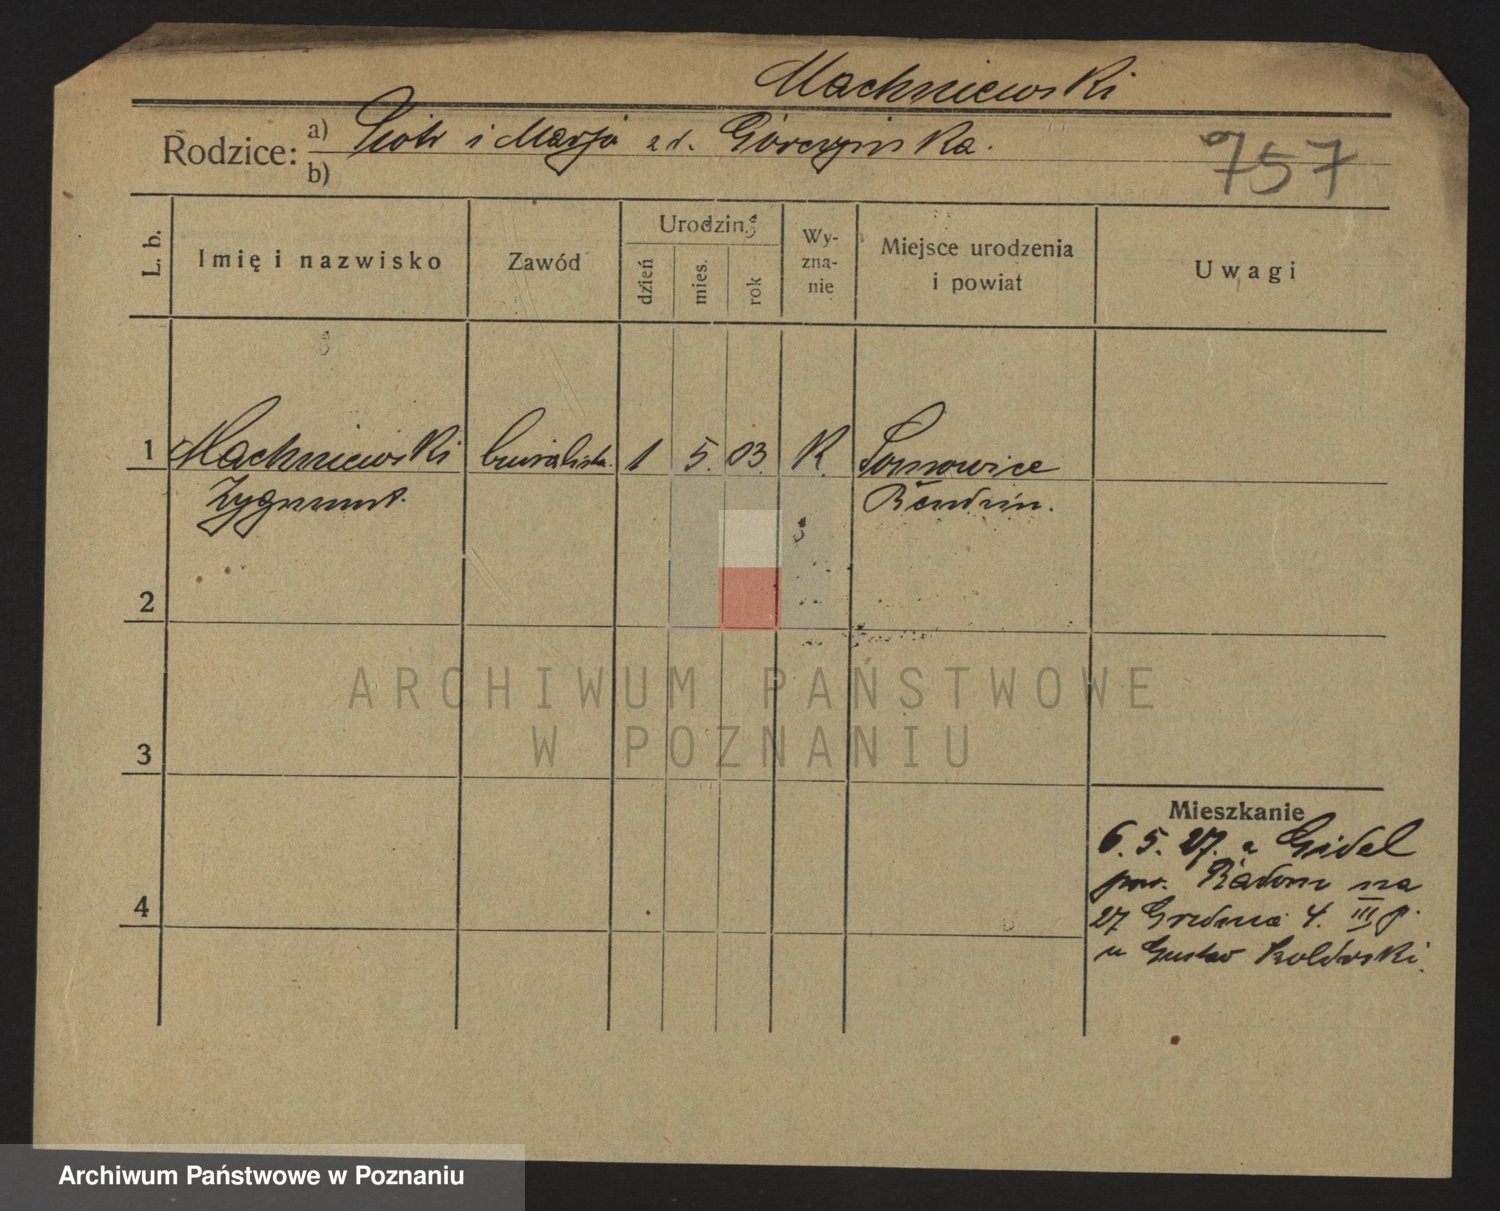 Machniewski
Rodzice: a) Piotr i Marja z d. Górczyńska.
b)
757
L. b.
Imię i nazwisko
Zawód
Urodziny
dzień
mies.
rok
Wy-
zna-
nie
Miejsce urodzenia
i powiat
Uwagi
1 Machniewski biuralista. 1 5. 03. K. Sosnowice
Zygmunt. Bendzin.
2
3
4
Mieszkanie
6. 5. 27. z Gidel
pow. Radom na
27 Grudnia 4. III p.
u Gustaw
ARCHIWUM PAŃSTWOWE
W POZNANIU
Archiwum Państwowe w Poznaniu